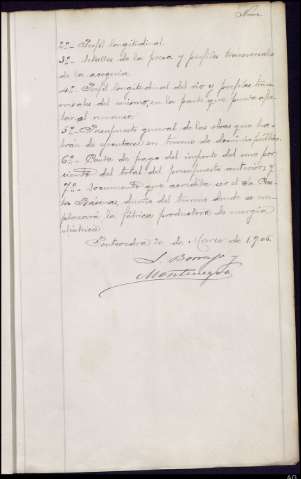 2º.- Perfil longitudinal.
3º.- Detalles de la presa y perfiles transversales
de la acequia.
4º.- Perfil longitudinal del río y perfiles trans-
versales del mismo, en la parte que pueda afec-
tar al
5º.- Presupuesto general de las obras que ha-
brán de ejecutarse en terreno de dominio público.
6º.- Carta de pago del importe del uno por
ciento del total del presupuesto anterior; y
7º.- Documento que acredita ser el
dueño del terreno donde se em-
plazará la fábrica productora de energía
eléctrica.
Pontevedra de Marzo de 1906.
Montenegro